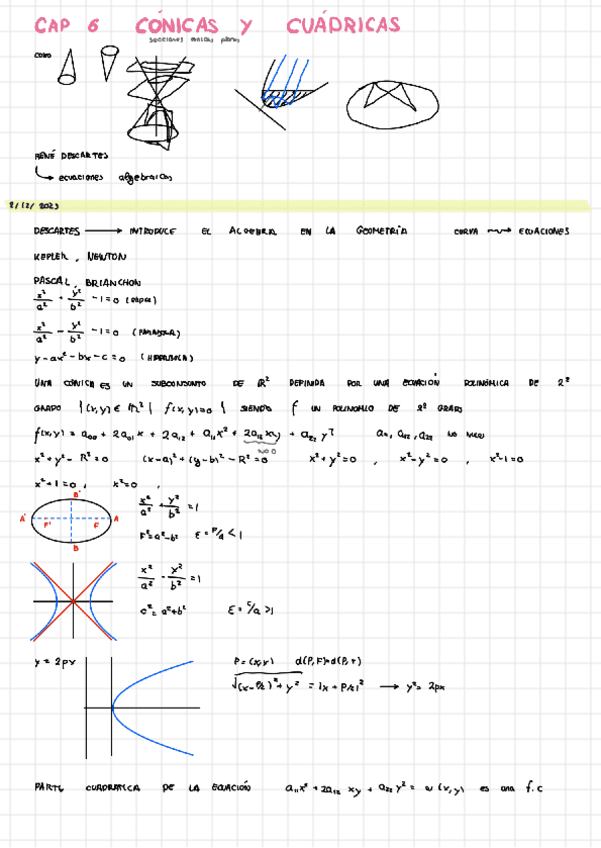 CAP 6 CÓNICAS Y CUÁDRICAS
secciones cónicas planas
CONO
RENÉ DESCARTES
ecuaciones algebraicas
2/12/2023
DESCARTES → INTRODUCE EL ALGEBRA EN LA GEOMETRÍA CURVA ⇝ ECUACIONES
KEPLER, NEWTON
PASCAL, BRIANCHON
x²/a² + y²/b² - 1 = 0 (elipse)
x²/a² - y²/b² - 1 = 0 (PARABOLA)
y - ax² - bx - c = 0 (HIPERBOLA)
UNA CÓNICA ES UN SUBCONJUNTO DE ℝ² DEFINIDA POR UNA ECUACIÓN POLINÓMICA DE 2º
GRADO {(x,y) ∈ ℝ² | f(x,y)=0} SIENDO f UN POLINOMIO DE 2º GRADO
f(x,y) = a₀₀ + 2a₀₁x + 2a₁₂ + a₁₁x² + 2a₁₂xy + a₂₂y² a₁₁, a₁₂, a₂₂ no
x² + y² - R² = 0 (x-a)² + (y-b)² - R² = 0 x² + y² = 0, x² - y² = 0, x² - 1 = 0
x² + 1 = 0, x² = 0,
B'
A' F' F A
B
x²/a² + y²/b² = 1
F² = a² - b² ε = F/a < 1
x²/a² - y²/b² = 1
c² = a² + b² ε = c/a > 1
y = 2px
P = (x,y) d(P,F) = d(P,r)
√((x - P/2)² + y²) = |x + P/2|² → y² = 2px
PARTE CUADRÁTICA DE LA ECUACIÓN a₁₁x² + 2a₁₂xy + a₂₂y² = ω(x,y) es una f.c